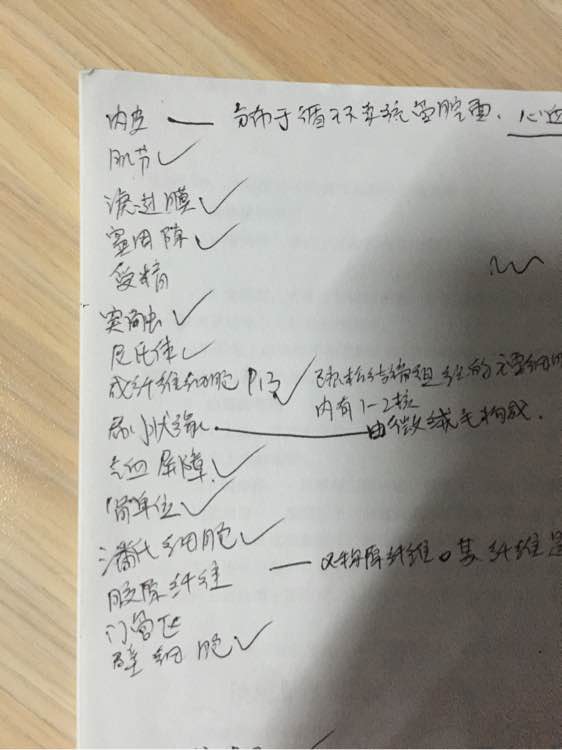 内皮 — 分布于循环系统管腔面. 心血
肌节 ✓
滤过膜 ✓
窦周隙 ✓
受精
突触 ✓
尼氏体 ✓
成纤维细胞 P13 ✓ 疏松结缔组织的主要细胞
内有1-2核
刷状缘 — 由微绒毛构成.
气血屏障. ✓
肾单位 ✓
潘氏细胞 ✓
胶原纤维 — 又称胶原纤维。其纤维是
门管区
壁细胞 ✓